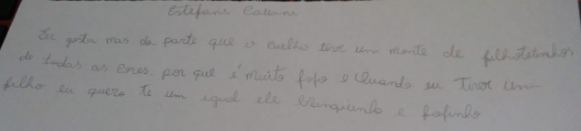 Estefane Caline
Eu gosto mas da parte que o cuelho teve um monte de filhotetinhos
de todas as cores. por que é muito fofo e Quando eu Tiver um
filho eu quero te um igual ele branquinho e fofinho